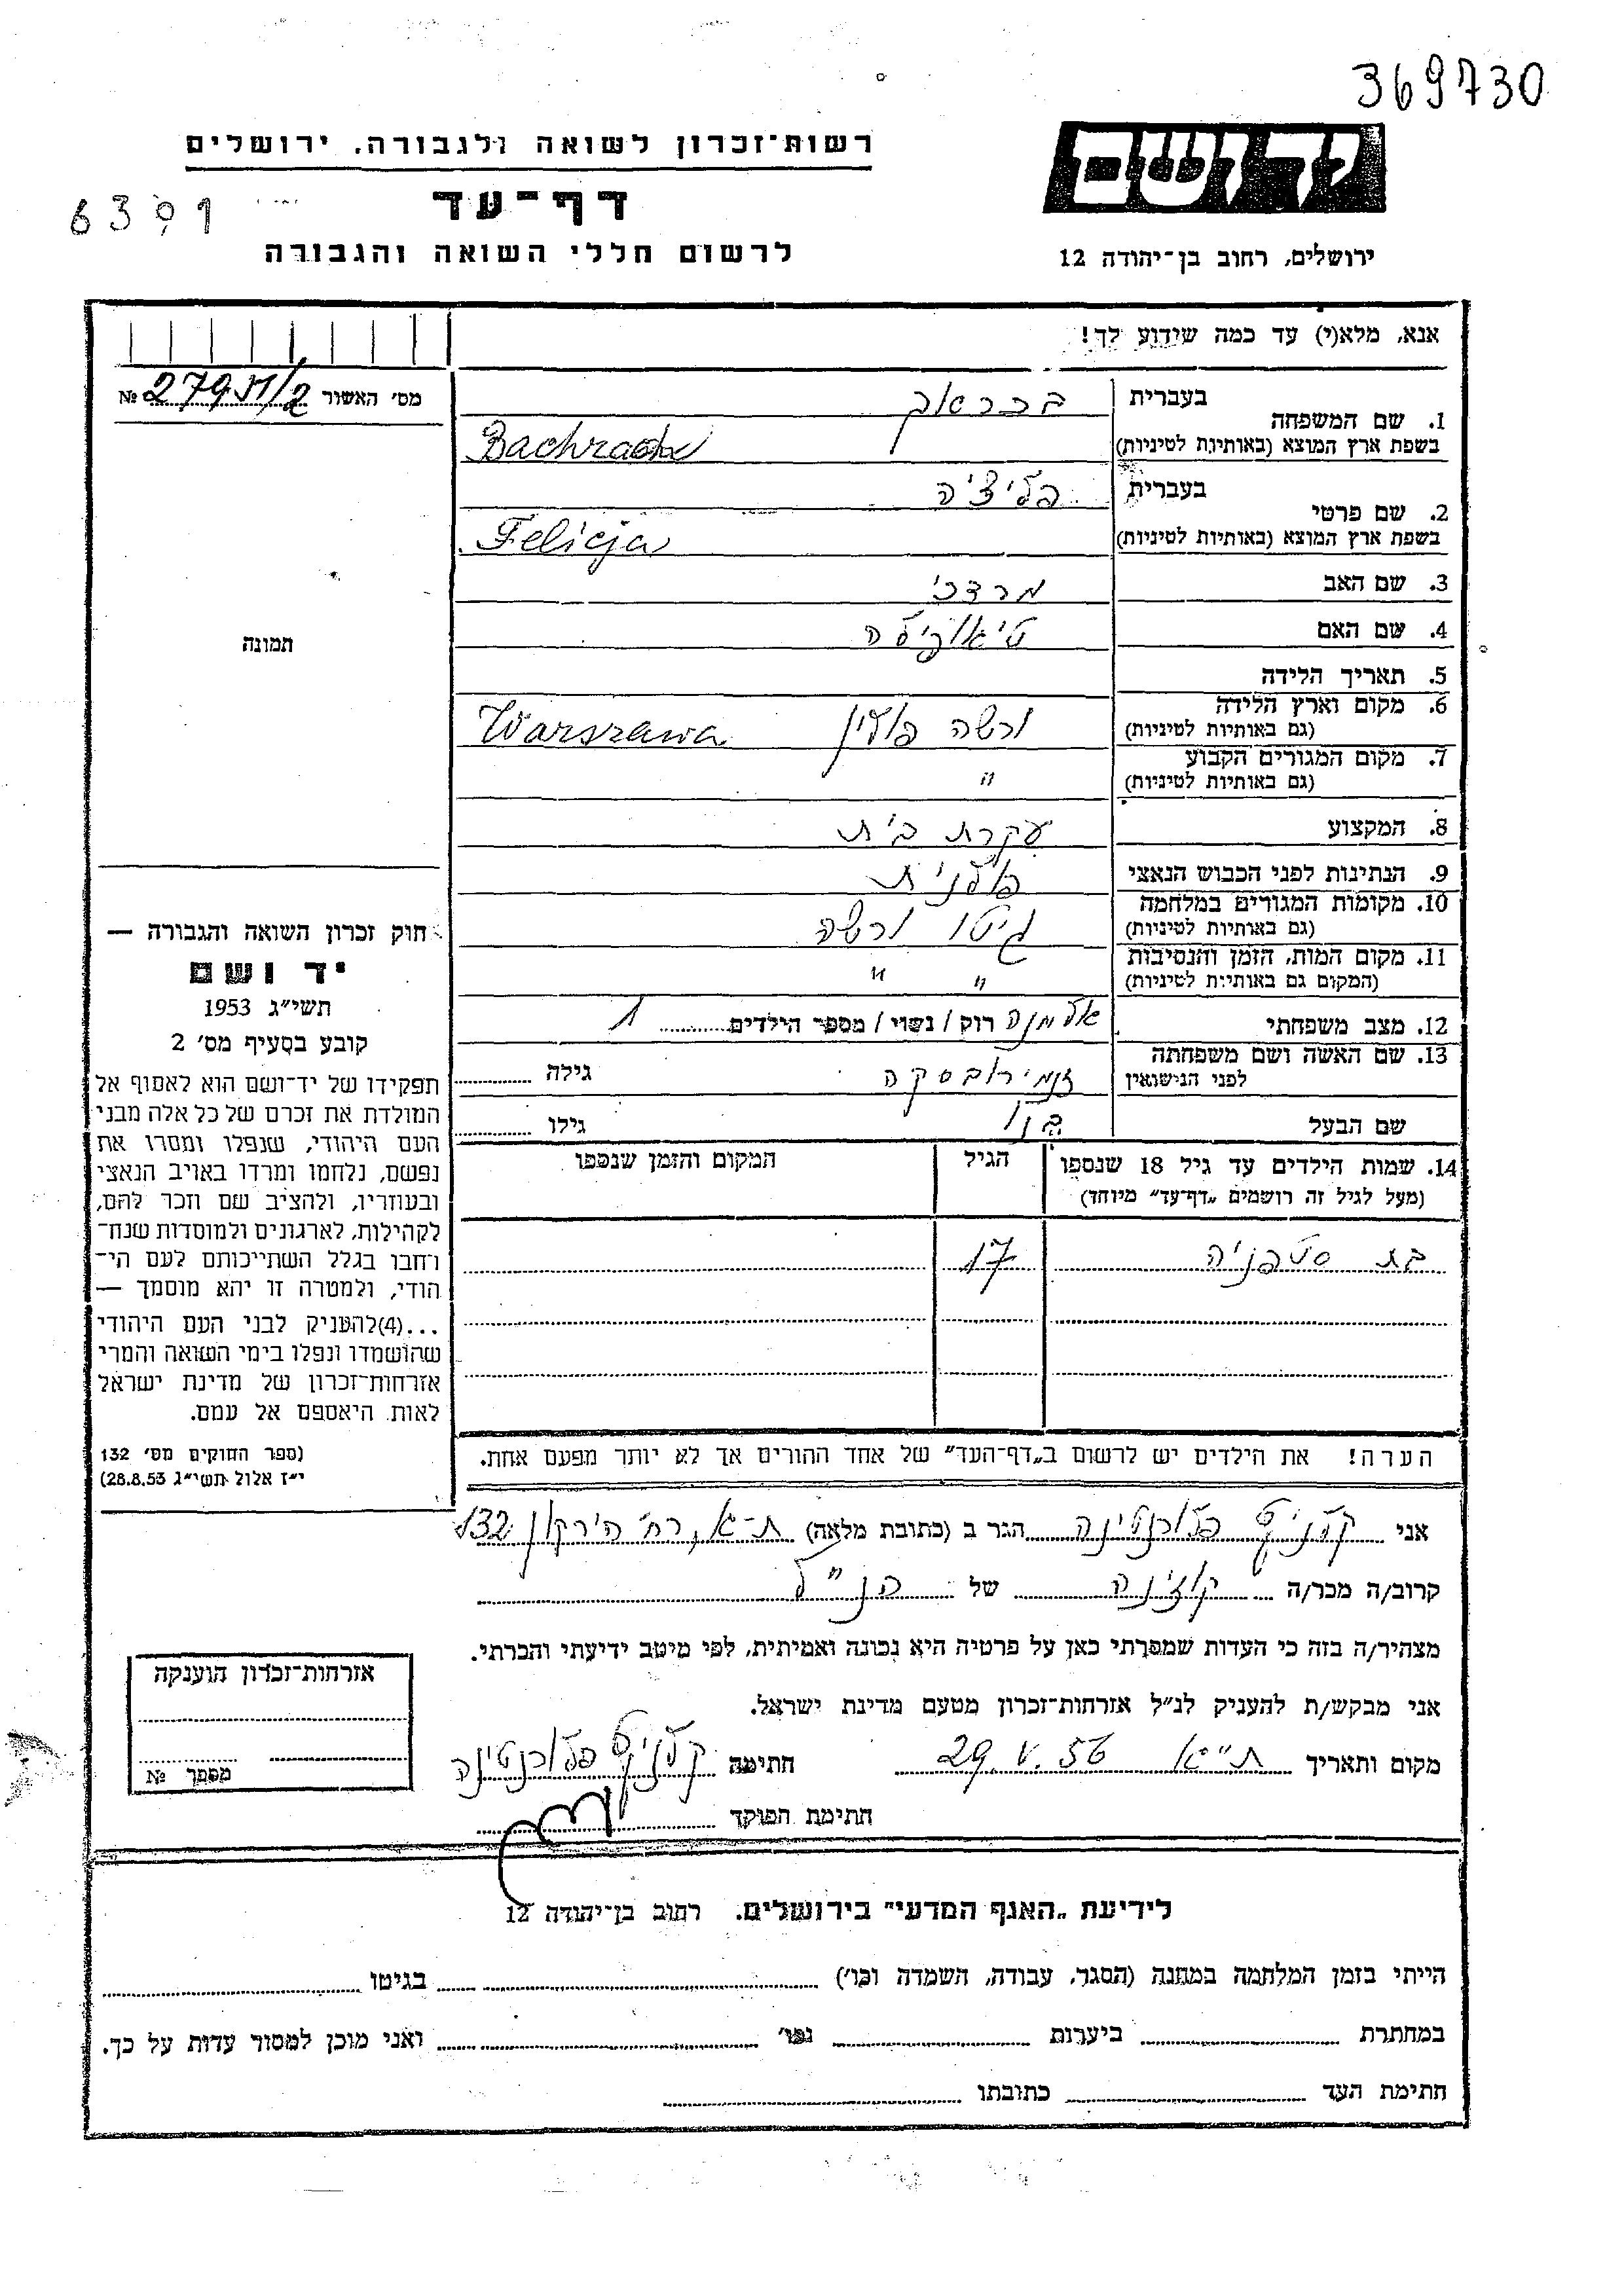 369730
יד ושם
רשות־זכרון לשואה ולגבורה, ירושלים
דף־עד
6391
לרשום חללי השואה והגבורה
ירושלים, רחוב בן־יהודה 12
אנא, מלא(י) עד כמה שידוע לך!
מס׳ האשור № 279 /2
1. שם המשפחה
בעברית בכראך
בשפת ארץ המוצא (באותיות לטיניות) Bachrach
2. שם פרטי
בעברית פליציה
בשפת ארץ המוצא (באותיות לטיניות) Felicja
3. שם האב מרדכי
4. שם האם
תמונה
5. תאריך הלידה
6. מקום וארץ הלידה
(גם באותיות לטיניות) ורשה פולין Warszawa
7. מקום המגורים הקבוע
(גם באותיות לטיניות) "
8. המקצוע עקרת בית
9. הנתינות לפני הכבוש הנאצי פולנית
10. מקומות המגורים במלחמה
(גם באותיות לטיניות) גיטו ורשה
11. מקום המות, הזמן והנסיבות
(המקום גם באותיות לטיניות) " "
12. מצב משפחתי אלמנה רוק / נשוי / מספר הילדים 1
13. שם האשה ושם משפחתה
לפני הנישואין זנמירובסקה גילה
שם הבעל בנו גילו
14. שמות הילדים עד גיל 18 שנספו הגיל המקום והזמן שנספו
(מעל לגיל זה רושמים „דף־עד” מיוחד)
בת סטפניה 17
הערה! את הילדים יש לרשום ב„דף־העד” של אחד ההורים אך לא יותר מפעם אחת.
חוק זכרון השואה והגבורה —
יד ושם
תשי״ג 1953
קובע בסעיף מס׳ 2
תפקידו של יד־ושם הוא לאסוף אל
המולדת את זכרם של כל אלה מבני
העם היהודי, שנפלו ומסרו את
נפשם, נלחמו ומרדו באויב הנאצי
ובעוזריו, ולהציב שם וזכר להם,
לקהילות, לארגונים ולמוסדות שנח־
רחבו בגלל השתייכותם לעם הי־
הודי, ולמטרה זו יהא מוסמך —
...(4)להעניק לבני העם היהודי
שהושמדו ונפלו בימי השואה והמרי
אזרחות־זכרון של מדינת ישראל
לאות היאספם אל עמם.
(ספר החוקים מס׳ 132
י״ז אלול תשי״ג 28.8.53)
אני פלורנטינה הגר ב (כתובת מלאה) ת־א, רח׳ הירקון 132
קרוב/ה מכר/ה קוזינה של הנ״ל
מצהיר/ה בזה כי העדות שמסרתי כאן על פרטיה היא נכונה ואמיתית, לפי מיטב ידיעתי והכרתי.
אני מבקש/ת להעניק לנ״ל אזרחות־זכרון מטעם מדינת ישראל.
מקום ותאריך ת״א 29. V. 56 חתימה פלורנטינה
חתימת הפוקד
אזרחות־זכרון הוענקה
מספר №
לידיעת „האגף המדעי” בירושלים. רחוב בן־יהודה 12
הייתי בזמן המלחמה במחנה (הסגר, עבודה, השמדה וכו׳) בגיטו
במחתרת ביערות וכו׳ ואני מוכן למסור עדות על כך.
חתימת העד כתובתו